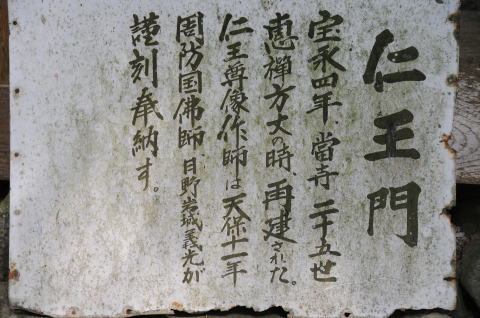 仁王門
宝永四年、當寺二十五世
恵禅方丈の時、再建された。
仁王尊像作師は天保十一年
周防国佛師、日野岩城義光が
謹刻奉納す。